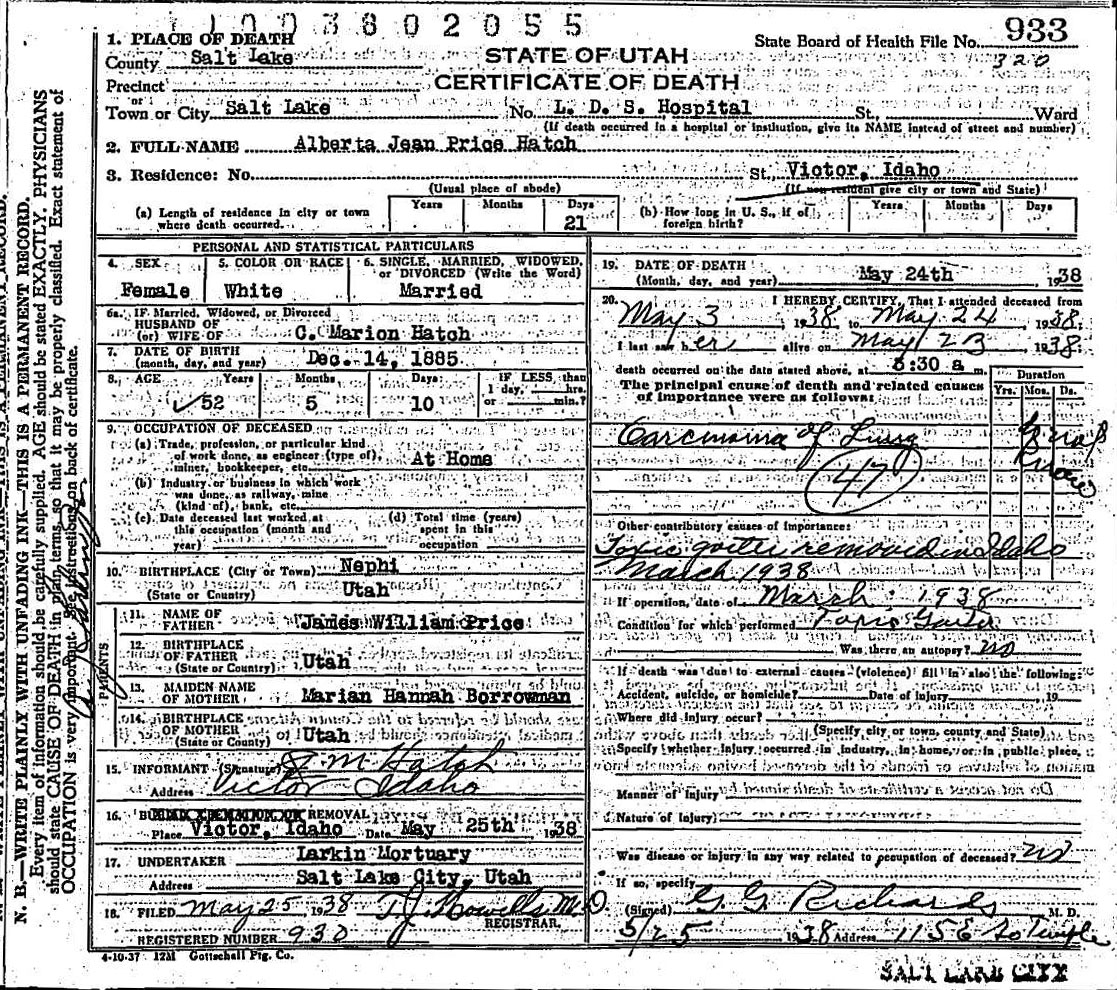 1 0 0 3 8 0 2 0 5 5
933
State Board of Health File No.
320
1. PLACE OF DEATH
County Salt Lake
STATE OF UTAH
CERTIFICATE OF DEATH
Precinct
or
Town or City Salt Lake No. L. D. S. Hospital St., Ward
(If death occurred in a hospital or institution, give its NAME instead of street and number)
2. FULL NAME Alberta Jean Price Hatch
3. Residence: No. St., Victor, Idaho
(Usual place of abode) (If non-resident give city or town and State)
(a) Length of residence in city or town where death occurred. Years Months Days 21
(b) How long in U. S., if of foreign birth? Years Months Days
PERSONAL AND STATISTICAL PARTICULARS
4. SEX Female
5. COLOR OR RACE White
6. SINGLE, MARRIED, WIDOWED, or DIVORCED (Write the Word) Married
6a. If Married, Widowed, or Divorced
HUSBAND OF
(or) WIFE OF C. Marion Hatch
7. DATE OF BIRTH
(month, day, and year) Dec. 14, 1885.
8. AGE Years 52 Months 5 Days 10
IF LESS than 1 day, hrs. or min.?
9. OCCUPATION OF DECEASED
(a) Trade, profession, or particular kind
of work done, as engineer (type of),
miner, bookkeeper, etc. At Home
(b) Industry or business in which work
was done, as railway, mine
(kind of), bank, etc.
(c) Date deceased last worked at
this occupation (month and
year)
(d) Total time (years)
spent in this
occupation
10. BIRTHPLACE (City or Town) Nephi
(State or Country) Utah
PARENTS
11. NAME OF
FATHER James William Price
12. BIRTHPLACE
OF FATHER
(State or Country) Utah
13. MAIDEN NAME
OF MOTHER Marian Hannah Borrowman
14. BIRTHPLACE
OF MOTHER
(State or County) Utah
15. INFORMANT (Signature) M Hatch
Address Victor Idaho
16. REMOVAL
Place Victor, Idaho Date May 25th 1938
17. UNDERTAKER Larkin Mortuary
Address Salt Lake City, Utah
18. FILED May 25 1938 T. J. Howells M.D.
REGISTRAR.
REGISTERED NUMBER 930
4-10-37 12M Gottschall Ptg. Co.
19. DATE OF DEATH
(Month, day, and year) May 24th, 1938
20. I HEREBY CERTIFY, That I attended deceased from
May 3 1938 to May 24 1938.
I last saw her alive on May 23 1938.
death occurred on the date stated above, at :30 a m.
The principal cause of death and related causes
of importance were as follows:
Duration
Yrs. Mos. Ds.
Carcinoma of Lung
know
47
Other contributory causes of importance:
Toxic goiter removed in Idaho
March 1938
If operation, date of March 1938
Condition for which performed Toxic Goiter
Was there an autopsy? no
If death was due to external causes (violence) fill in also the following:
Accident, suicide, or homicide? Date of injury 19
Where did injury occur?
(Specify city or town, county and State)
Specify whether injury occurred in industry, in home, or in public place,
Manner of Injury
Nature of Injury
Was disease or injury in any way related to occupation of deceased? no
If so, specify
(Signed) G. G. Richards M. D.
5/25 1938 Address 1156 So Temple
SALT LAKE CITY
N. B.—WRITE PLAINLY WITH UNFADING INK—THIS IS A PERMANENT RECORD.
Every item of information should be carefully supplied. AGE should be stated EXACTLY. PHYSICIANS
should state CAUSE OF DEATH in plain terms, so that it may be properly classified. Exact statement of
OCCUPATION is very important. See instructions on back of certificate.